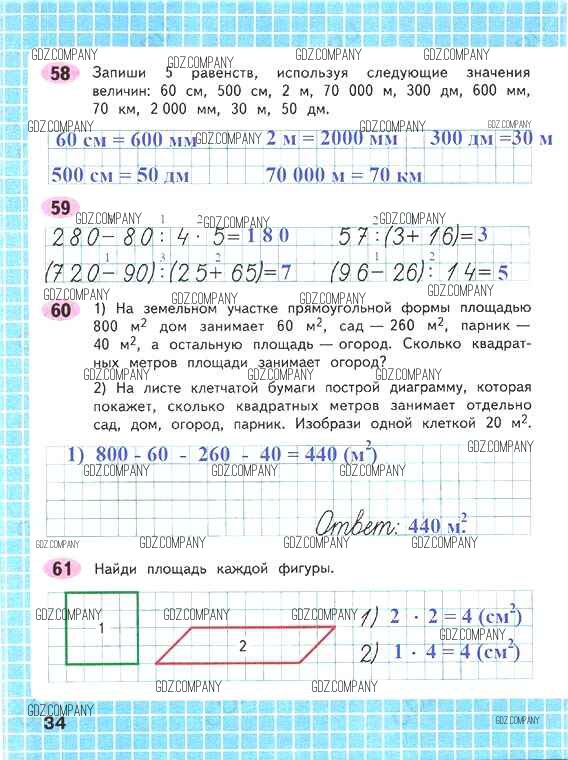 GDZ.COMPANY GDZ.COMPANY GDZ.COMPANY GDZ.COMPANY
58 Запиши 5 равенств, используя следующие значения
величин: 60 см, 500 см, 2 м, 70 000 м, 300 дм, 600 мм,
70 км, 2 000 мм, 30 м, 50 дм.
GDZ.COMPANY GDZ.COMPANY GDZ.COMPANY GDZ.COMPANY
60 см = 600 мм 2 м = 2000 мм 300 дм =30 м
500 см = 50 дм 70 000 м = 70 км
59
GDZ.COMPANY GDZ.COMPANY GDZ.COMPANY GDZ.COMPANY
1 2 2 1
280 − 80 : 4 · 5 = 180 57 : (3 + 16) = 3
1 3 2 1 2
(720 − 90) : (25 + 65) = 7 (96 − 26) : 14 = 5
GDZ.COMPANY GDZ.COMPANY GDZ.COMPANY GDZ.COMPANY
60 1) На земельном участке прямоугольной формы площадью
800 м² дом занимает 60 м², сад — 260 м², парник —
40 м², а остальную площадь — огород. Сколько квадрат-
ных метров площади занимает огород?
GDZ.COMPANY GDZ.COMPANY GDZ.COMPANY
2) На листе клетчатой бумаги построй диаграмму, которая
покажет, сколько квадратных метров занимает отдельно
сад, дом, огород, парник. Изобрази одной клеткой 20 м².
GDZ.COMPANY
1) 800 - 60 - 260 - 40 = 440 (м²)
GDZ.COMPANY GDZ.COMPANY GDZ.COMPANY GDZ.COMPANY
Ответ: 440 м².
GDZ.COMPANY GDZ.COMPANY GDZ.COMPANY GDZ.COMPANY
61 Найди площадь каждой фигуры.
GDZ.COMPANY GDZ.COMPANY GDZ.COMPANY GDZ.COMPANY
1 1) 2 · 2 = 4 (см²)
2 2) 1 · 4 = 4 (см²)
GDZ.COMPANY GDZ.COMPANY GDZ.COMPANY
GDZ.COMPANY GDZ.COMPANY
34